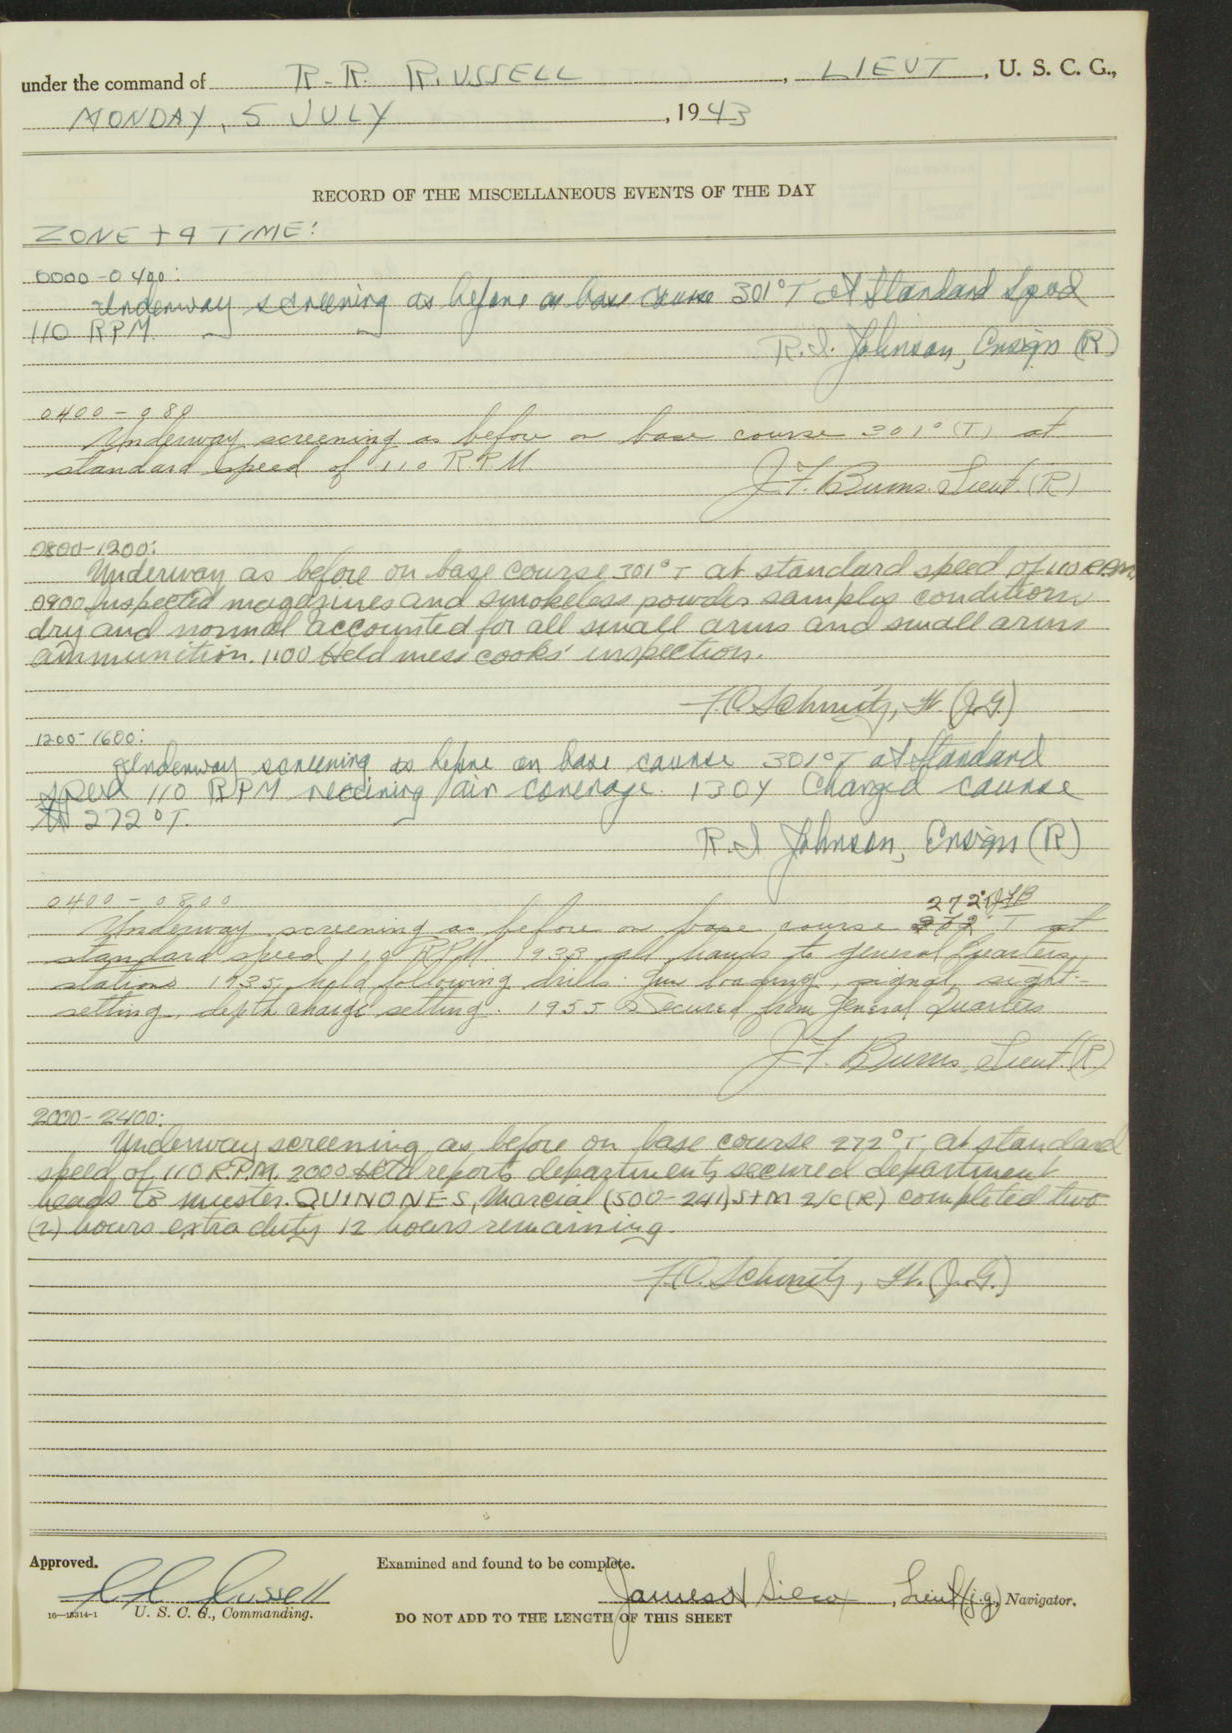 under the command of R. R. RUSSELL, LIEUT, U. S. C. G.,
MONDAY, 5 JULY, 1943
RECORD OF THE MISCELLANEOUS EVENTS OF THE DAY
ZONE + 9 TIME:
0000-0400:
Underway screening as before on base course 301°T at Standard Speed
110 RPM.
R.I. Johnson, Ensign (R)
0400-080
Underway screening as before on base course 301° (T) at
standard speed of 110 R.P.M
J.F. Burns. Lieut. (R)
0800-1200:
Underway as before on base course 301° T at standard speed of 110 R.P.M.
0900 Inspected magazines and smokeless powder samples conditions
dry and normal accounted for all small arms and small arms
ammunition. 1100 Held mess cooks' inspection.
F.O. Schmitz, Lt. (J.G.)
1200-1600:
Underway screening as before on base course 301°T at Standard
speed 110 RPM receiving air coverage. 1304 Changed course
to 272°T.
R.I Johnson, Ensign (R)
0400-0800
272° JFB
Underway screening as before on base course 202° T at
standard speed 110 RPM 1933 all hands to general quarters
stations 1935, held following drills: gun loading, signal, sight-
setting, depth charge setting. 1955 Secured from General Quarters
J.F. Burns, Lieut. (R)
2000-2400:
Underway screening as before on base course 272° T at standard
speed of 110 R.P.M. 2000 Held reports departments secured department
heads to muster. QUINONES, Marcial (500-241) StM 2/c (R) completed two
(2) hours extra duty 12 hours remaining.
F.O. Schmitz, Lt. (J.G.)
Approved.
Examined and found to be complete.
R R Russell
James H Silcox, Lieut (j.g.) Navigator.
16—18314-1 U. S. C. G., Commanding.
DO NOT ADD TO THE LENGTH OF THIS SHEET